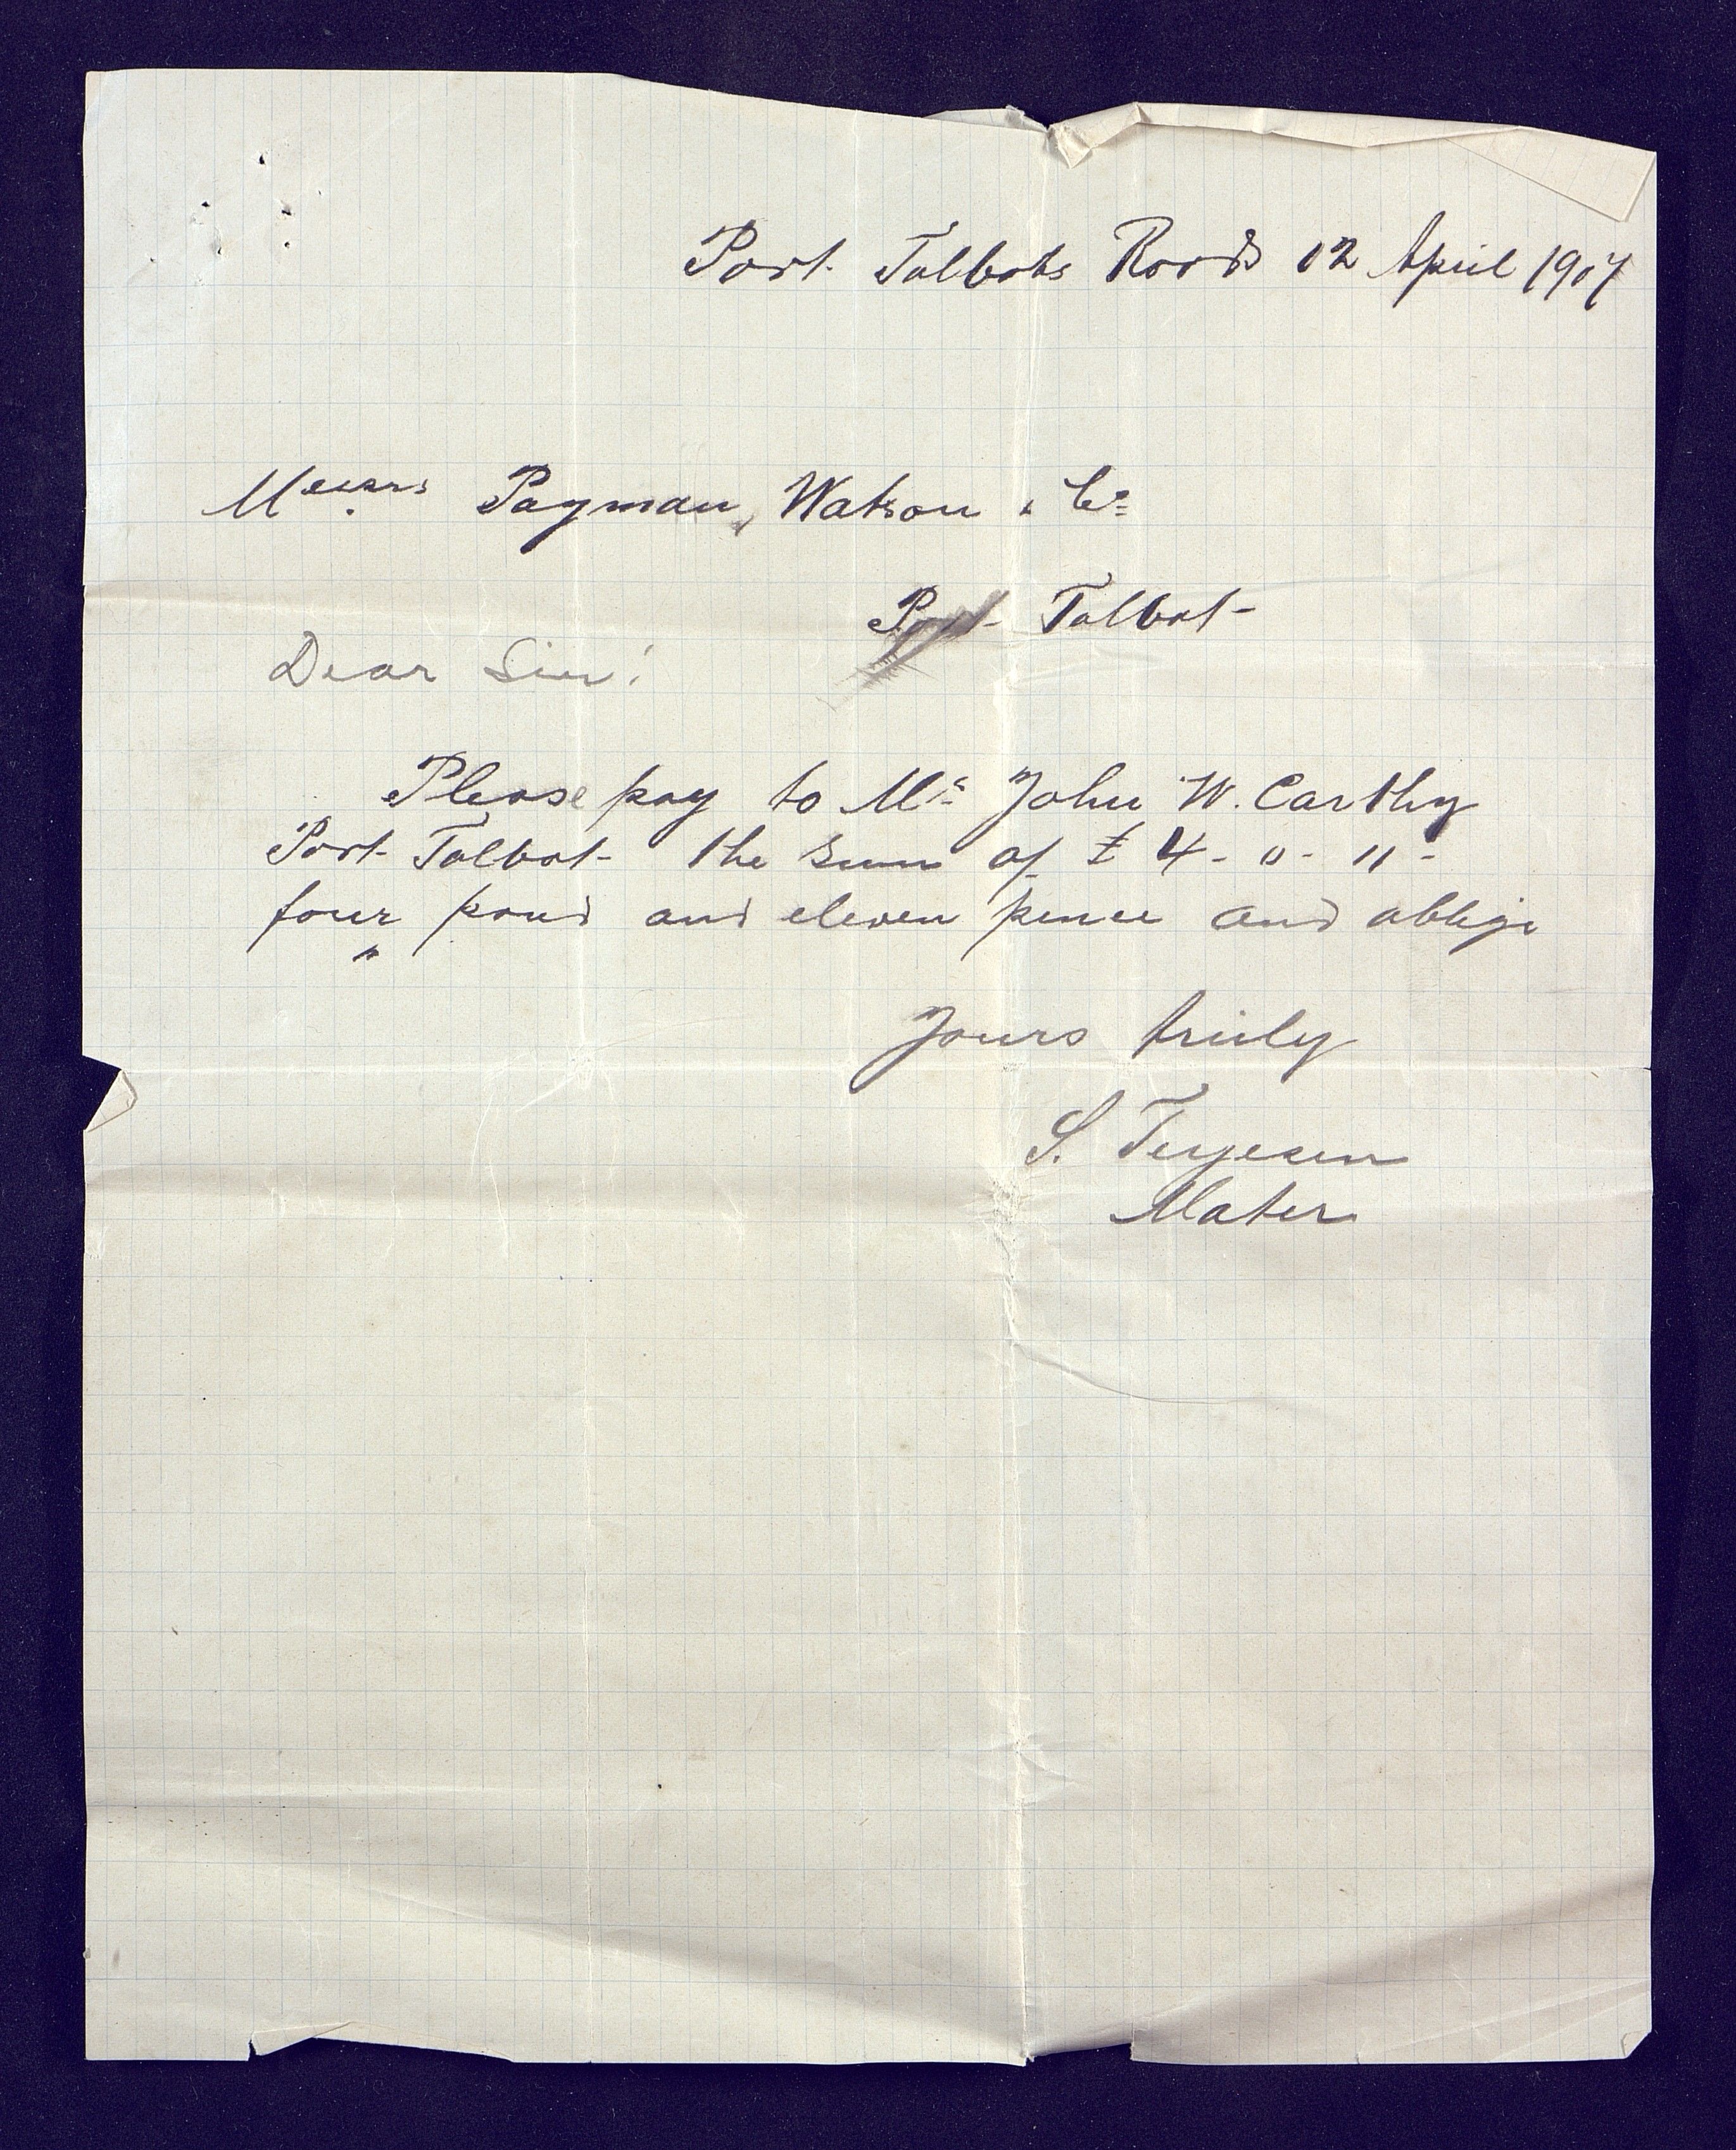 Port Talbots Roads 12 April 1907
Messrs Pagman, Watson & Co
Port Talbot
Dear Sir!
Please pay to Mr John W. Carthy
Port Talbot the sum of £ 4 - 0 - 11 -
four " pound and eleven pence and oblige
Yours truly
S. Terjesen
Mater